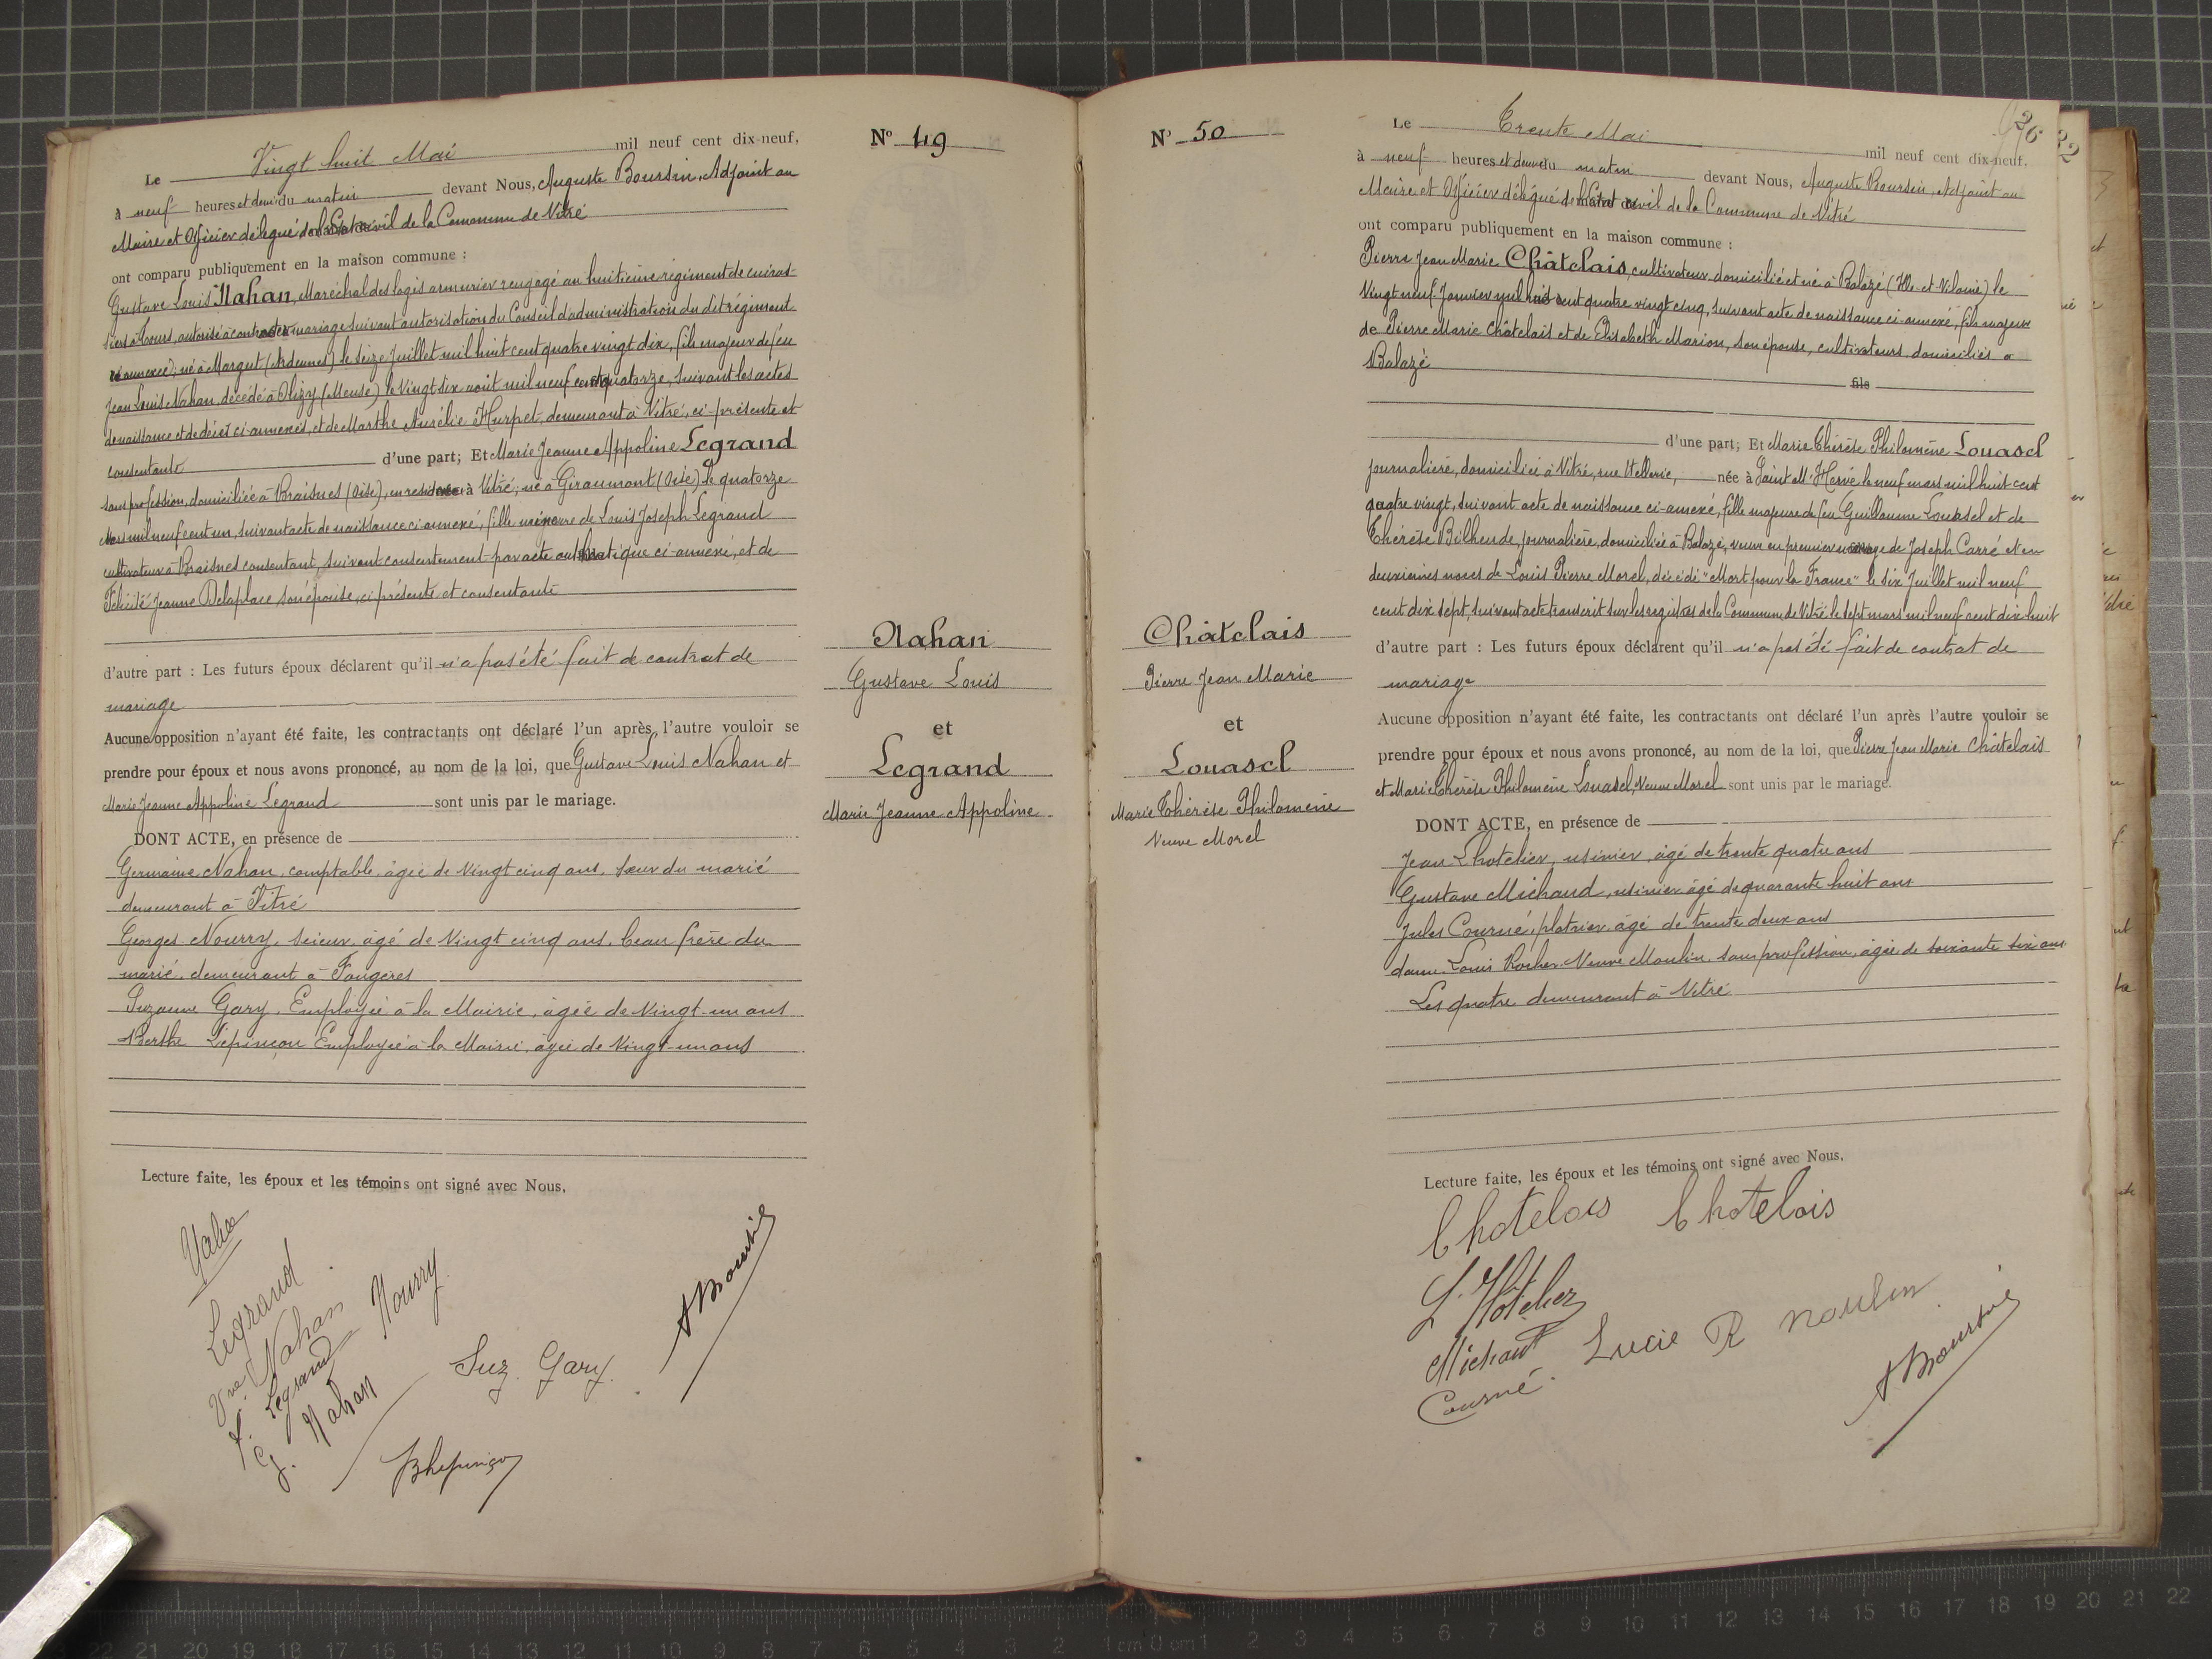 Le Vingt huit Mai mil neuf cent dix-neuf,
à neuf heures et demi du matin devant Nous, Auguste Boursin, Adjoint au
Maire et Officier délégué de l'Etat civil de la Commune de Vitré
ont comparu publiquement en la maison commune :
Gustave Louis Nahan, Maréchal des logis armurier rengagé au huitième régiment de cuiras-
siers à Tours, autorisé à contracter mariage suivant autorisation du Conseil d'administration du dit régiment
ci annexée; né à Margut (Ardennes) le seize Juillet mil huit cent quatre vingt dix, fils majeur de feu
Jean Louis Nahan, décédé à Olizy (Meuse) le Vingt six août mil neuf cent quatorze, suivant les actes
de naissance et de décès ci-annexés, et de Marthe Aurélie Hurpet, demeurant à Vitré, ci-présente et
consentante d'une part; Et Marie Jeanne Appoline Legrand
sans profession, domiciliée à Braisnes (Oise), en résidence à Vitré; né à Giraumont (Oise) le quatorze
Mars mil neuf cent un, suivant acte de naissance ci-annexé, fille mineure de Louis Joseph Legrand
cultivateur à Braisnes consentant, suivant consentement par acte authentique ci-annexé, et de
Félicité Jeanne Delaplace son épouse, ci présente et consentante
d'autre part : Les futurs époux déclarent qu'il n'a pas été fait de contrat de
mariage
Aucune opposition n'ayant été faite, les contractants ont déclaré l'un après l'autre vouloir se
prendre pour époux et nous avons prononcé, au nom de la loi, que Gustave Louis Nahan et
Marie Jeanne Appoline Legrand sont unis par le mariage.
DONT ACTE, en présence de
Germaine Nahan, comptable, âgée de Vingt cinq ans, sœur du marié
demeurant à Vitré
Georges Nourry, scieur, âgé de Vingt cinq ans, beau frère du
marié, demeurant à Fougères
Suzanne Gary, Employée à la Mairie, âgée de Vingt-un ans
Berthe Lépinçon Employée à la Mairie, âgée de Vingt-un ans
Lecture faite, les époux et les témoins ont signé avec Nous.
Nahan
Legrand
Vve Nahan Nourry
F. Legrand
G. Nahan
Suz. Gary
ABoursin
N° 49
Nahan
Gustave Louis
et
Legrand
Marie Jeanne Appoline
N° 50
Châtelais
Pierre Jean Marie
et
Louasel
Marie Thérèse Philomène
Veuve Morel
26
32
Le Trente Mai mil neuf cent dix-neuf,
à neuf heures et demi du matin devant Nous, Auguste Boursin, Adjoint au
Maire et Officier délégué de l'Etat civil de la Commune de Vitré
ont comparu publiquement en la maison commune :
Pierre Jean Marie Châtelais, cultivateur, domicilié et né à Balazé (Ille-et-Vilaine) le
Vingt neuf Janvier mil huit cent quatre vingt cinq, suivant acte de naissance ci-annexé, fils majeur
de Pierre Marie Châtelais et de Elisabeth Marion, son épouse, cultivateurs domiciliés à
Balazé
fils
d'une part; Et Marie Thérèse Philomène Louasel
journalière, domiciliée à Vitré, rue née à Saint M'Hervé le neuf mars mil huit cent
quatre vingt, suivant acte de naissance ci-annexé, fille majeure de feu Guillaume Louasel et de
Thérèse Bilheude, journalière, domiciliée à Balazé, veuve en premier mariage de Joseph Carré et en
deuxièmes noces de Louis Pierre Morel, décédé "Mort pour la France" le six Juillet mil neuf
cent dix sept, suivant acte transcrit sur les registres de la Commune de Vitré le sept mars mil neuf cent dix huit
d'autre part : Les futurs époux déclarent qu'il n'a pas été fait de contrat de
mariage
Aucune opposition n'ayant été faite, les contractants ont déclaré l'un après l'autre vouloir se
prendre pour époux et nous avons prononcé, au nom de la loi, que Pierre Jean Marie Châtelais
et Marie Thérèse Philomène Louasel, Veuve Morel sont unis par le mariage.
DONT ACTE, en présence de
Jean Lhotelier, usinier, âgé de trente quatre ans
Gustave Michaud, usinier âgé de quarante huit ans
Jules Courné, platrier âgé de trente deux ans
dame Louis Rocher Veuve Moulin, sans profession, âgée de soixante six ans
Les quatre demeurant à Vitré
Lecture faite, les époux et les témoins ont signé avec Nous.
Chotelais Chotelais
L'Hotelier
Michaud Lucie R moulin
Cousné
ABoursin
22 21 20 19 18 17 16 15 14 13 12 11 10 9 8 7 6 5 4 3 2 1 cm 0 cm 1 2 3 4 5 6 7 8 9 10 11 12 13 14 15 16 17 18 19 20 21 22